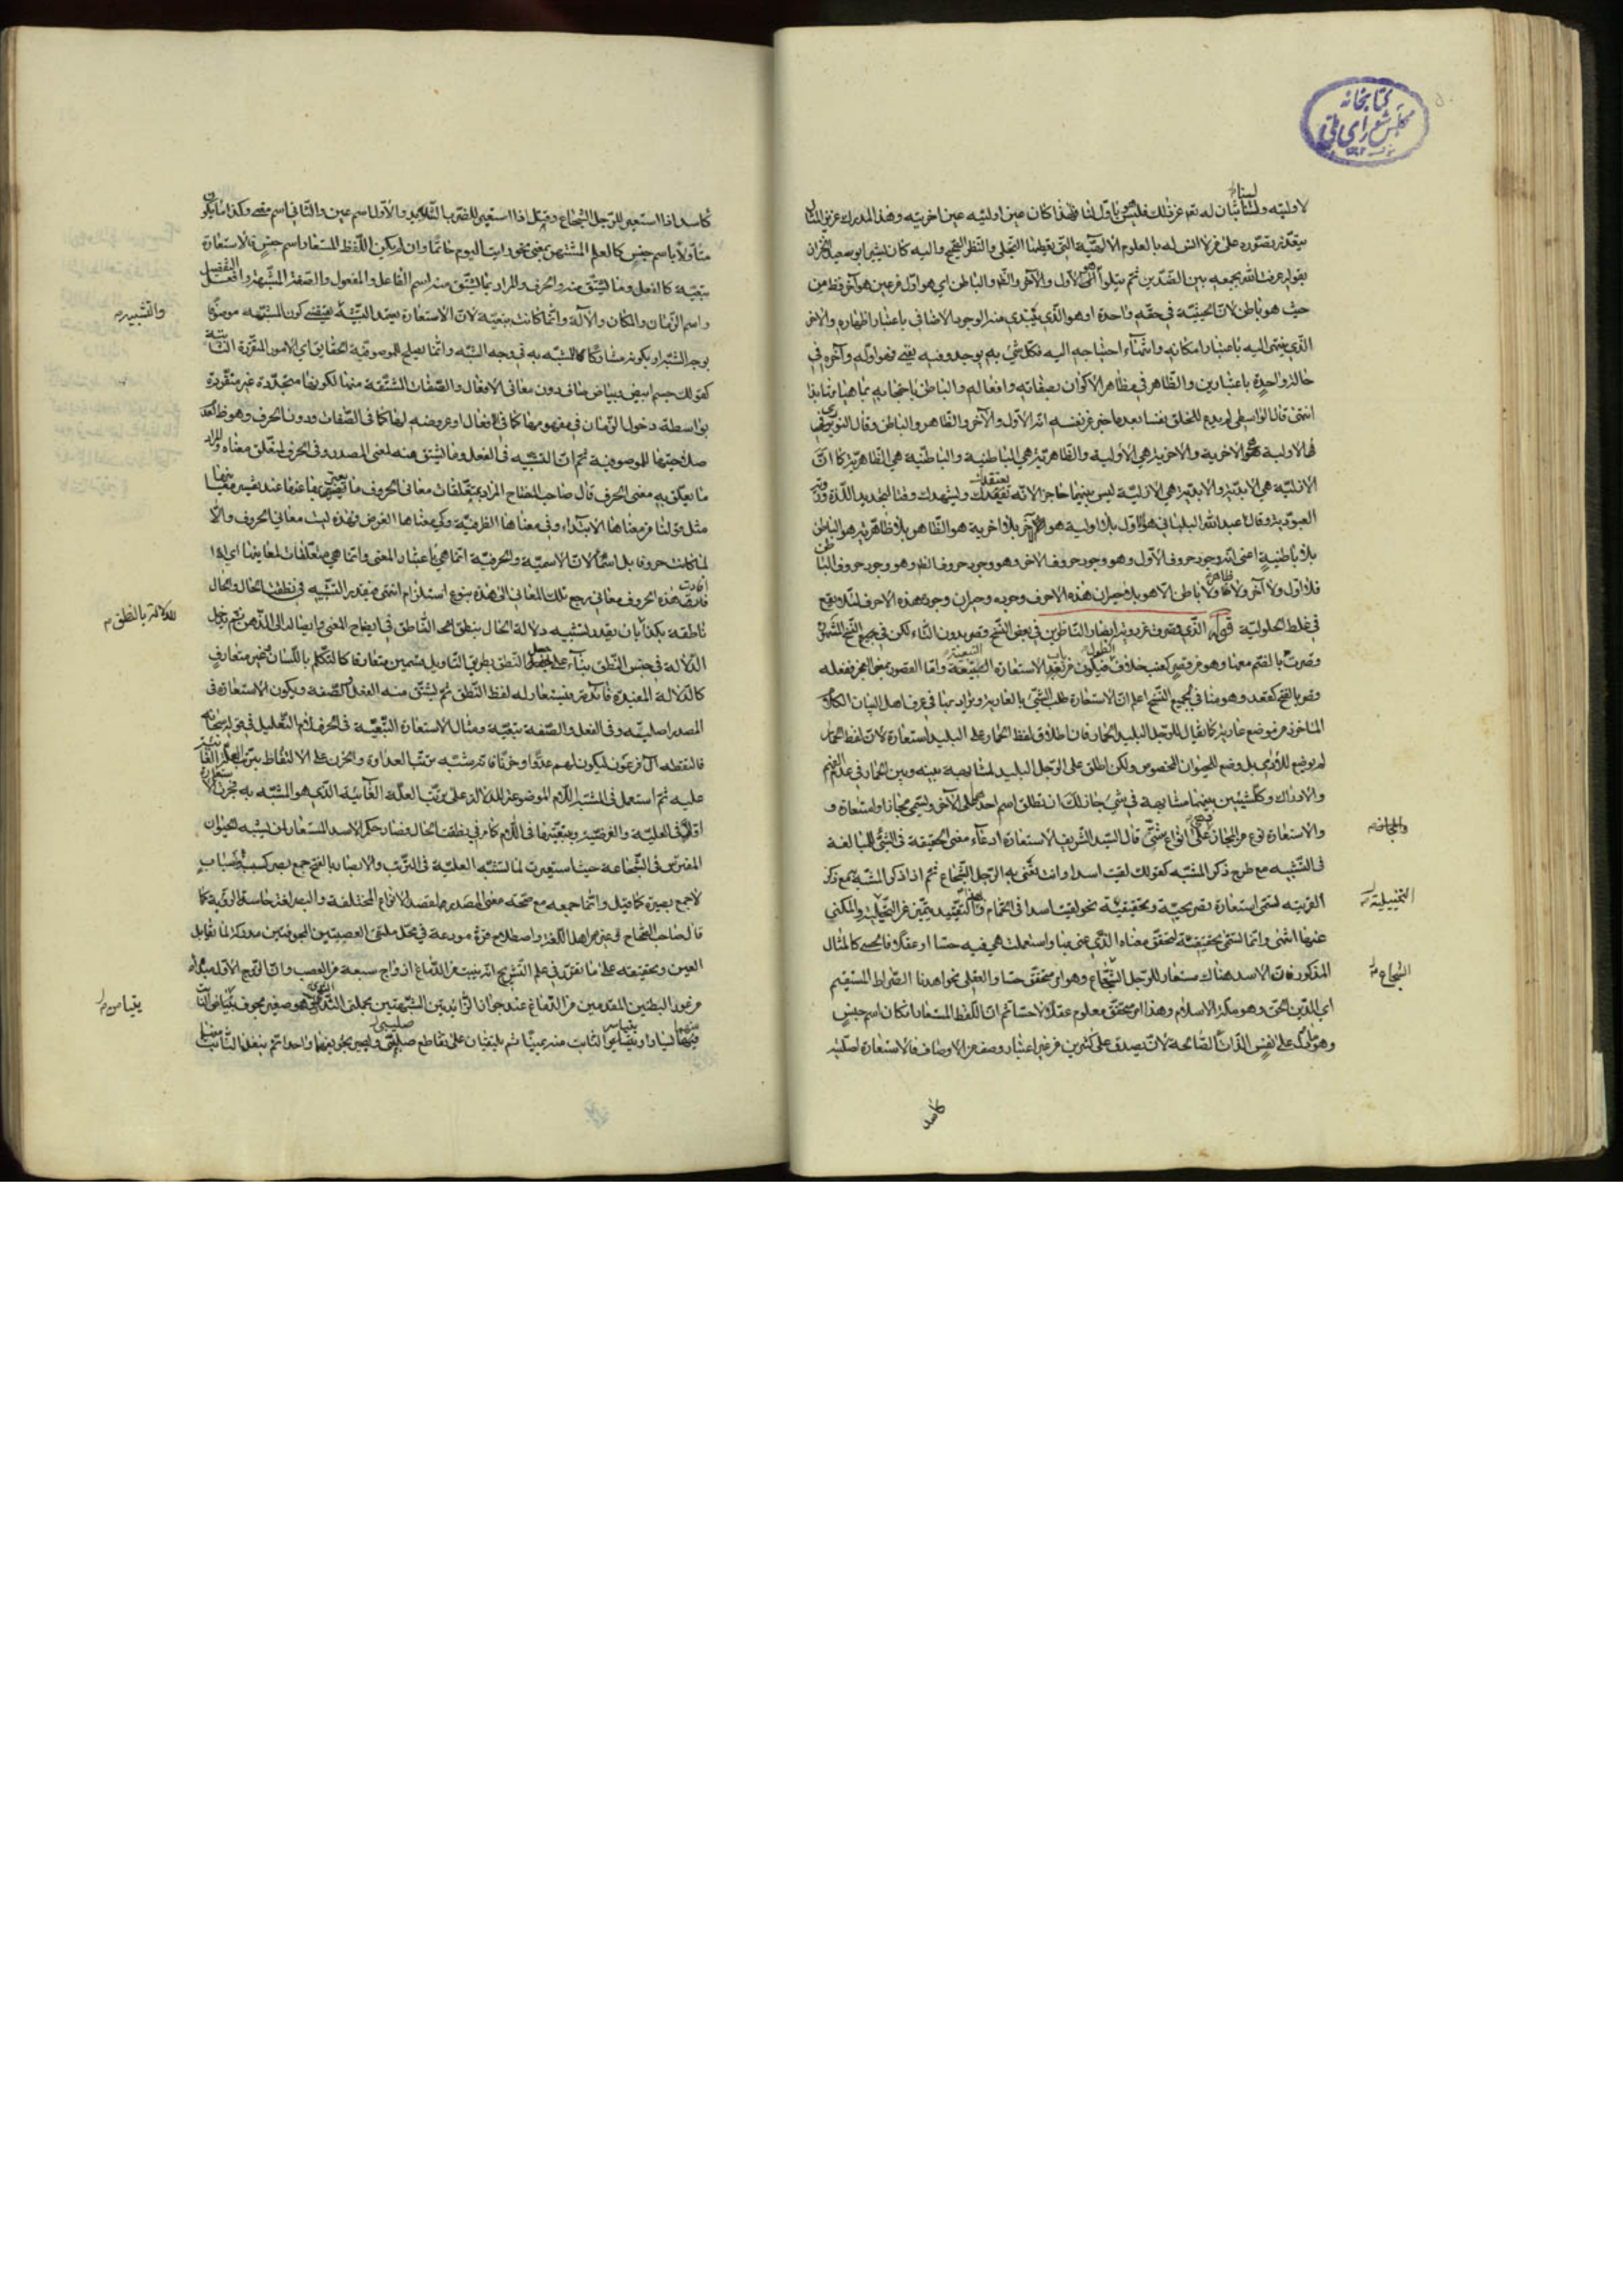 كتابخانه
مجلس شورای ملی
لاوليته ولسنا بان له تعه غير ذلك فليس باول لنا فلهذا كان عين اوليته عين اخريته وهذا المدرك عزيز المنال
يتعذر تصوره على من لا انس له بالعلوم الالهية التي يعطيها التجلى والنظر الصحيح واليه كان يشير ابو سعيد الخراز
بقوله عرفت الله بجمعه بين الضدين ثم يتلوا هو الاول والآخر والظاهر والباطن اي هو اول من عين هو آخر
حيث هو باطن لان الحيثية في حقه واحدة او هو الذي يبتدى منه الوجود الاضافي باعتبار اظهاره والاخر
الذي ينتهى اليه باعتبار امكانه وانتهاء احتياجه اليه فكل شئ به يوجد وفيه يفنى فهو اوله وآخره في
حالة واحدة باعتبارين والظاهر في مظاهر الاكوان بصفاته وافعاله والباطن باحتجابه
انتهى قال الواسطي لم يدع للخلق نفسا بعد ما اخبر عن نفسه انه الاول والآخر والظاهر والباطن وقال
الاولية هي الاخرية والاخرية هي الاولية والظاهرية هي الباطنية والباطنية هي الظاهرية كما ان
الازلية هي الابدية والابدية هي الازلية ليس بينهما حاجز الا انه
العبودية وقال عبد الله البلياني هو الاول بلا اولية هو الآخر بلا اخرية هو الظاهر بلا ظاهرية هو الباطن
بلا باطنية اعنى انه وجود حروف الاول وهو وجود حروف الاخر وهو وجود حروف الظاهر وهو وجود حروف الباطن
فلا اول ولا آخر ولا ظاهر ولا باطن الا هو بلا جيران هذه الاحرف وجوده وجيران وجوده هذه الاحرف لئلا يقع
في غلط الحلولية قوله الذي قصرت عن رؤيته ابصار الناظرين في بعض النسخ وقصر بدون التاء لكن في جميع النسخ
وقصرت بالضم معها وهو من قصر كعنب خلاف الطول
وهو بالفتح كقعد وهو هنا في جميع النسخ اعلم ان الاستعارة طلب الشئ بالعارية ويراد بها في عرف اهل البيان الكلمة
الماخوذة من موضع عارية كما يقال للرجل البليد الحمار فان اطلاق لفظ الحمار على البليد استعارة لان لفظ الحمار
لم يوضع للآدمي بل وضع للحيوان المخصوص ولكن اطلق على الرجل البليد لمشابهة بينه وبين الحمار في عدم الفهم
والادراك وكل شيئين بينهما مشابهة في شئ جاز لك ان تطلق اسم احدهما على الآخر ويسمى مجازا واستعارة و
والاستعارة نوع من المجاز وهي على انواع شتى قال السيد الشريف الاستعارة ادعاء معنى الحقيقة في الشئ للمبالغة
في التشبيه مع طرح ذكر المشبه كقولك لقيت اسدا وانت تعنى به الرجل الشجاع ثم اذا ذكر المشبه به مع ذكر
القرينة تسمى استعارة تصريحية وتحقيقية نحو لقيت اسدا في الحمام
عنها انتهى وانما تسمى تحقيقية لتحقق معناه الذي عنى بها واستعملت هي فيه حسا او عقلا فالحسي كالمثال
المذكور فان الاسد هناك مستعار للرجل الشجاع وهو امر متحقق حسا والعقلى نحو اهدنا الصراط المستقيم
اي الدين الحق وهو ملة الاسلام وهذا امر متحقق معلوم عقلا لا حسا ثم ان اللفظ المستعار ان كان اسم جنس
وهو ما دل على نفس الذات الصالحة لان يصدق على كثيرين من غير اعتبار وصف من الاوصاف فالاستعارة اصلية
كاسد
كاسد اذا استعير للرجل الشجاع وقتل اذا استعير للضرب الشديد والاول اسم عين والثاني اسم معنى وكذا ما يكون
متأولا باسم جنس كالعلم المشتهر بمعنى نحو رايت اليوم حاتما وان لم يكن اللفظ المستعار اسم جنس فالاستعارة
تبعية كالفعل وما يشتق منه والحرف والمراد بما يشتق منه اسم الفاعل والمفعول والصفة المشبهة وافعل التفضيل
واسم الزمان والمكان والآلة وانما كانت تبعية لان الاستعارة تعتمد التشبيه والتشبيه يقتضى كون المشبه موصوفا
بوجه الشبه او بكونه مشاركا للمشبه به في وجه الشبه وانما يصلح للموصوفية الحقايق اي الامور المتقررة الثابتة
كقولك جسم ابيض وبياض صاف دون معاني الافعال والصفات المشتقة منها لكونها متجددة غير متقررة
بواسطة دخول الزمان في مفهومها كما في الافعال او عروضه لها كما في الصفات ودون الحرف وهو ظاهر لعدم
صلاحيتها للموصوفية ثم ان التشبيه في الفعل وما يشتق منه لمعنى المصدر وفي الحرف لمتعلق معناه والمراد
ما يتعلق به معنى الحرف قال صاحب المفتاح المراد بمتعلقات معاني الحروف ما يعبر بها عنها عند تفسير معانيها
مثل قولنا من معناها الابتداء وفى معناها الظرفية وكي معناها الغرض فهذه ليست معاني الحروف والا
لما كانت حروفا بل اسماء لان الاسمية والحرفية انما هي باعتبار المعنى وانما هي متعلقات لمعانيها اي اذا
افادت هذه الحروف معاني رجع تلك المعاني الى هذه بنوع استلزام انتهى فيقدر التشبيه في نطقت الحال والحال
ناطقة بكذا بان يقدر تشبيه دلالة الحال بنطق الناطق في ايضاح المعنى وايصاله الى الذهن ثم يدخل
الدلالة في جنس النطق بناء على جعل النطق بطريق التاويل قسمين متعارفا كالتكلم باللسان وغير متعارف
كالدلالة المفيدة فائدته فيستعار له لفظ النطق ثم يشتق منه الفعل والصفة ويكون الاستعارة في
المصدر اصلية وفى الفعل والصفة تبعية ومثال الاستعارة التبعية في الحرف لام التعليل في قوله سبحانه
فالتقطه آل فرعون ليكون لهم عدوا وحزنا فانه شبه ترتب العداوة والحزن على الالتقاط بترتب العلة الغائية
عليه ثم استعمل في المشبه اللام الموضوعة للدلالة على ترتب العلة الغائية الذي هو المشبه به فجرت الاستعارة
اولا في العلية والغرضية وبتبعيتها في اللام كما مر في نطقت الحال فصار حكم الاسد المستعار لما يشبه الحيوان
المفترس في الشجاعة حيث استعيرت لما يشبه العلية في الترتب والابصار بالفتح جمع بصر كسبب واسباب
لا جمع بصيرة كما قيل وانما جمعه مع صحة معنى المصدر هنا لقصد الانواع المختلفة والبصر لغة حاسة الرؤية كما
قال صاحب الصحاح وغيره من اهل اللغة واصطلاح قوة مودعة في محل ملتقى العصبتين المجوفتين مدركة لما يقابل
العين وتحقيقه على ما تقرر في علم التشريح انه ينبت من الدماغ ازواج سبعة من العصب وان الزوج الاول مبداه
من غور البطنين المقدمين من الدماغ عند جوار الزائدتين الشبيهتين بحلمتى الثدي وهو صغير مجوف يتيامن النابت
منهما يسارا ويتياسر النابت منهما يمينا ثم يلتقيان على تقاطع صليبي ويصير تجويفهما واحدا ثم ينفذ النابت يمينا
والتشبيه
الدلالة بالنطق
يتيامن
التخييلية
الشجاع